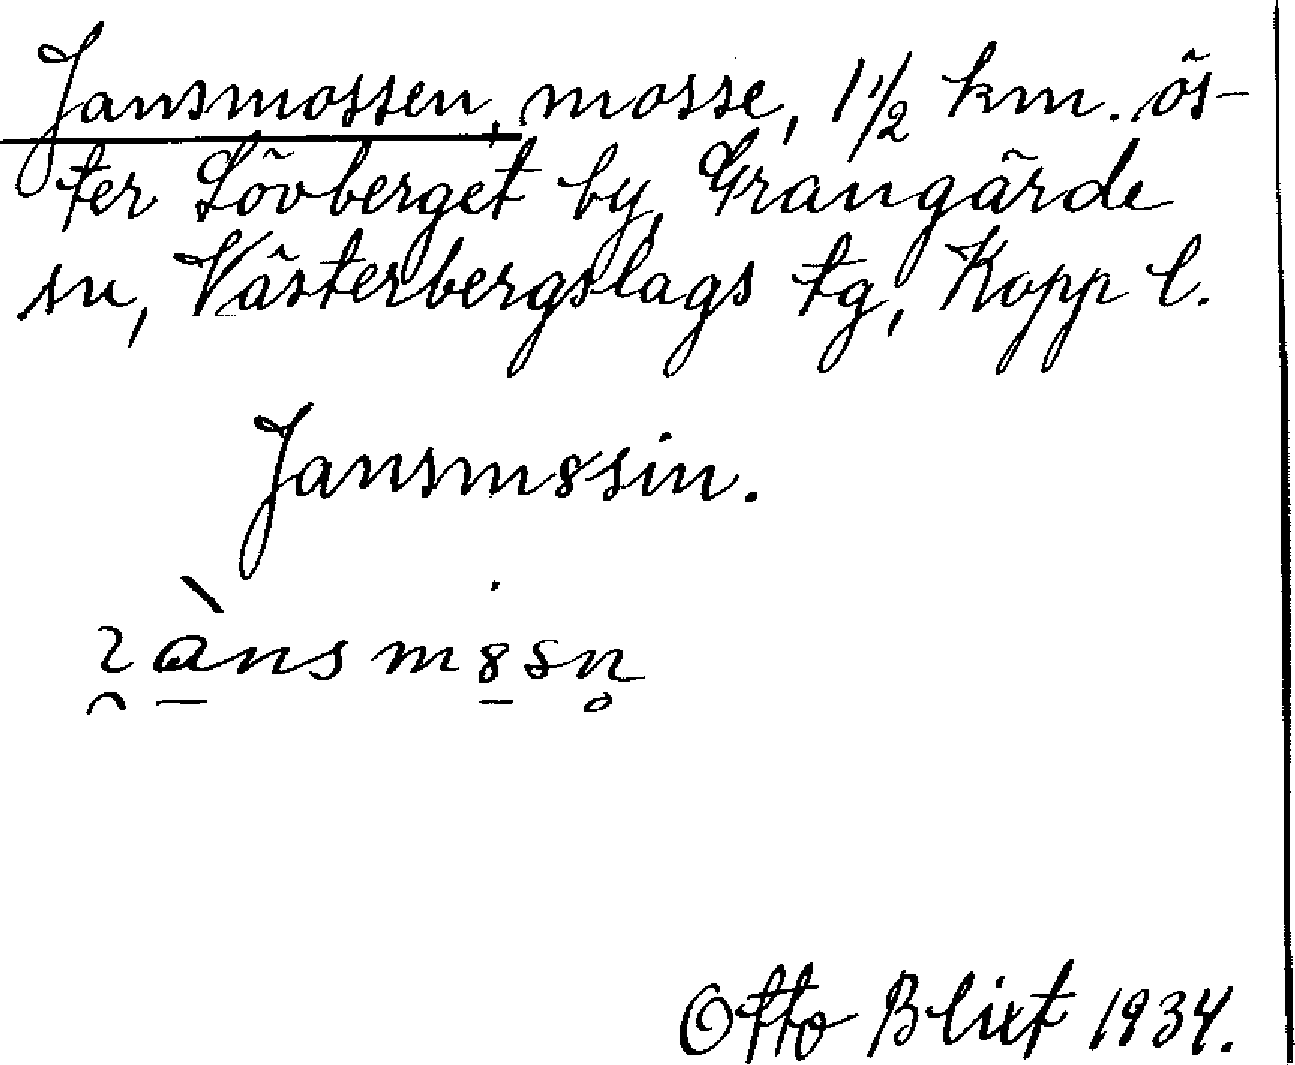 Jansmossen, mosse, 1 1/2 km. ös-
ter Lövberget by, Grangärde
sn, Västerbergslags tg, Kopp l.
Jansm8sin.
Otto Blixt 1934.